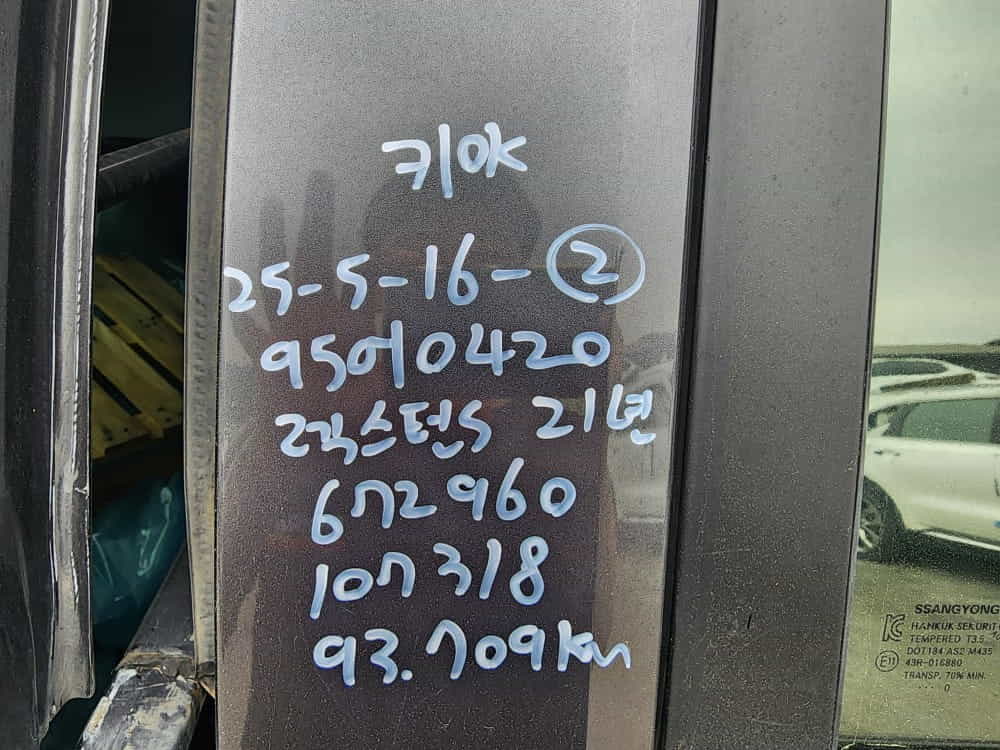 키OK
25-5-16-②
95어0420
렉스턴S 21년
6기2960
10기318
93.709km
SSANGYONG
HANKUK SEKURIT
TEMPERED T3.5
DOT184 AS2 M435
E11 43R-016880
TRANSP. 70% MIN.
... 0